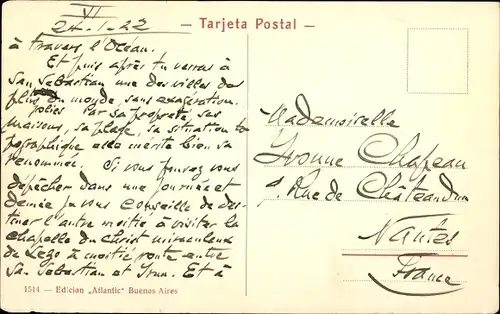 VI
- Tarjeta Postal -
24-1-22
à travers l'Océan.
Et puis après tu verras à
San Sebastian une des villes des
plus du monde, sans exagération.
jolies Par sa propreté, ses
maisons, sa plage, sa situation to
pographique elle mérite bien sa
renommée. Si vous pouvez vous
dépêcher dans une journée et
demie je vous conseille de des-
tiner l'autre moitié à visiter la
chapelle du Christ miraculeux
de Lezo à moitié route entre
San Sebastian et Irun. Et à
Mademoiselle
Yvonne Chapeau
Rue de Châteaudun
Nantes
France
1514 — Edicion „Atlantic" Buenos Aires